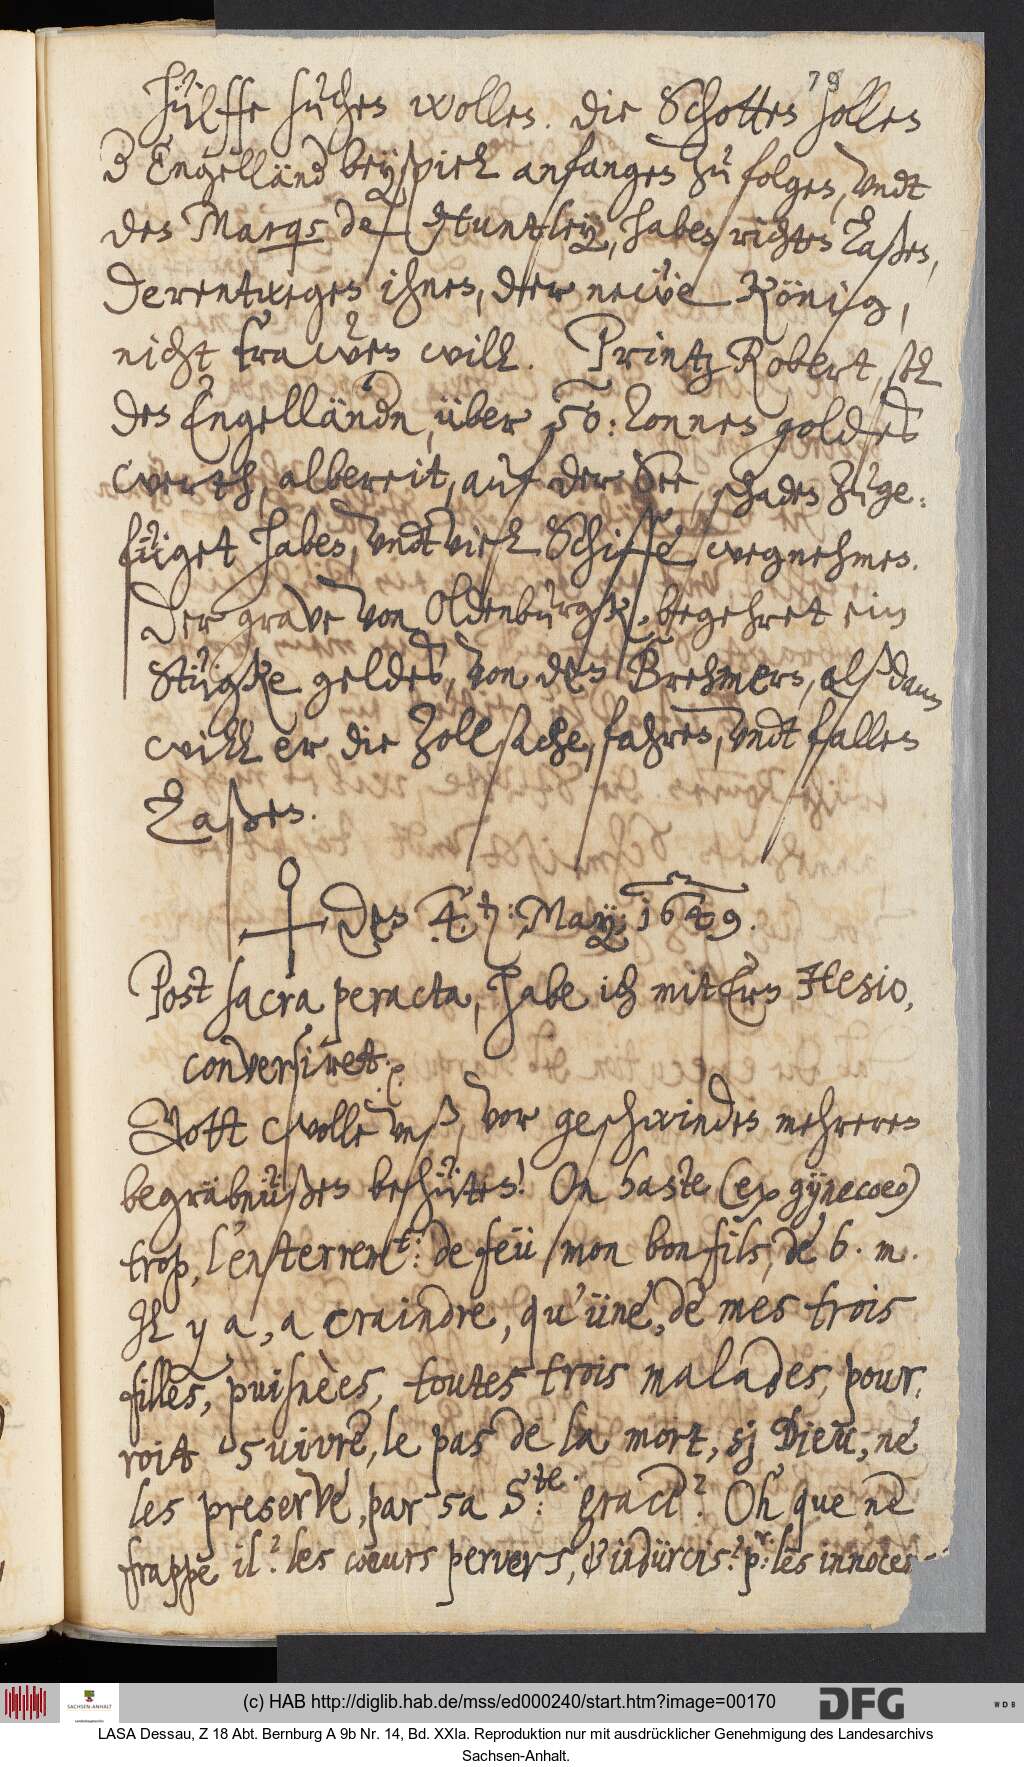 79
hülffe suchen wollen. Die Schotten sollen
d Engelländ beyspiel anfangen zu folgen, undt
den Marqs de Huntley, haben richten laßen,
Derentwegen ihnen, der neüe König,
nicht trawen will. Printz Robert, soll
den Engelländn, über 50: Tonnen goldes
werth, albereit, auf der See, schaden zuge:
füget haben, undt viel Schiffe wegnehmen.
Der grave von Oldenburgk, begehret ein
Stügke geldes, von den Brehmern, alßdann
will er die Zollsache, fahren, undt fallen
laßen.
Den 4t: May: 1649.
Post sacra peracta, habe ich mit Ern Hesio,
conversiret. p
Gott wolle unß, vor geschwinden mehreren
begräbnüßen behüten! On haste (ex gÿnecoeo)
trop, l'ensterremt: de feü mon bon fils, de 6. m.
Il y a, a craindre, qu'üne, de mes trois
filles, puisnèes, toutes trois malades, pour,
roit suivre, le pas de la mort, sj Dieu, ne
les preserve, par sa Ste: grace? Oh que ne
frappe il? les coeurs pervers, & indürcis? pr: les innocen-
(c) HAB http://diglib.hab.de/mss/ed000240/start.htm?image=00170
SACHSEN-ANHALT
DFG
WDB
LASA Dessau, Z 18 Abt. Bernburg A 9b Nr. 14, Bd. XXIa. Reproduktion nur mit ausdrücklicher Genehmigung des Landesarchivs
Sachsen-Anhalt.